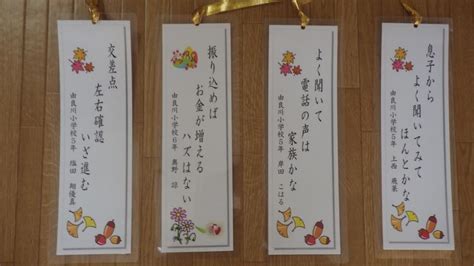 息子から
よく聞いてみて
ほんとかな
由良川小学校5年 上西
よく聞いて
電話の声は
家族かな
由良川小学校5年 岸田 こはる
振り込めば
お金が増える
ハズはない
由良川小学校6年 奥野 諒
交差点
左右確認
いざ進む
由良川小学校5年 塩田 翔優真